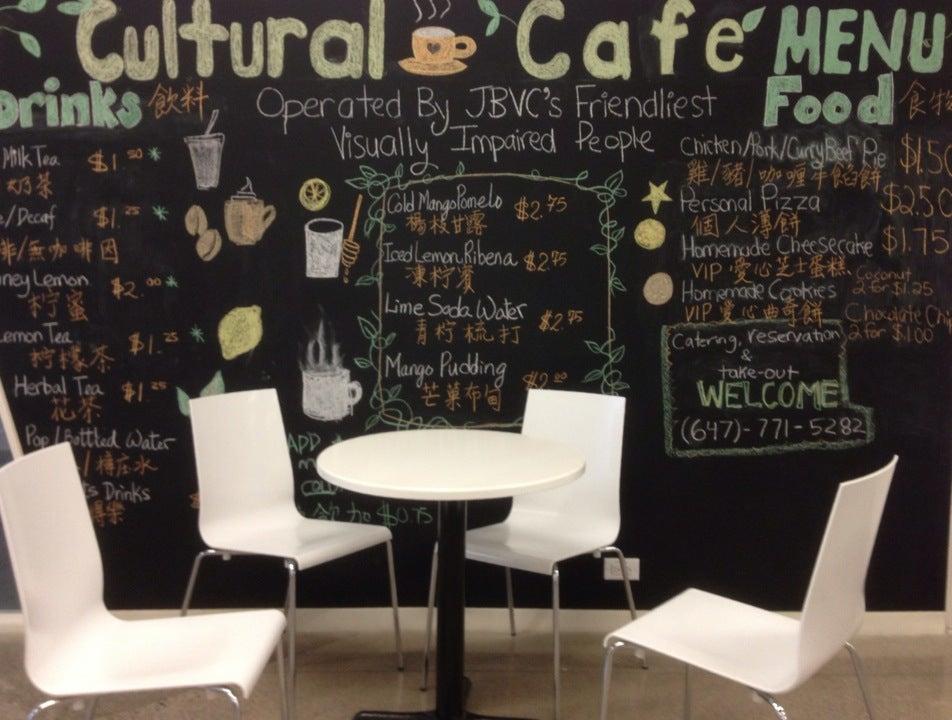 Cultural Cafe MENU
Drinks 飲料
Milk Tea $1.50 *
奶茶
/Decaf $1.25 *
啡/無咖啡因
ney Lemon $2.00 *
檸蜜
Lemon Tea $1.25 *
檸檬茶
Herbal Tea $1.25
花茶
Pop/Bottled Water
/樽庄水
Drinks
ADD
飲加 $0.75
Operated By JBVC's Friendliest
Visually Impaired People
Cold Mango Pomelo $2.75
楊枝甘露
Iced Lemon Ribena $2.75
凍檸濱
Lime Soda Water $2.75
青柠梳打
Mango Pudding $2.00
芒菓布甸
Food 食物
Chicken/Pork/Curry Beef Pie $1.50
雞/豬/咖喱牛餡餅
Personal Pizza $2.50
個人薄餅
Homemade Cheesecake $1.75
VIP 愛心芝士蛋糕
Homemade Cookies Coconut 2 for $1.25
VIP 愛心曲奇餅 Chocolate Ch
2 for $1.00
Catering, reservation
&
take-out
WELCOME
(647)-771-5282